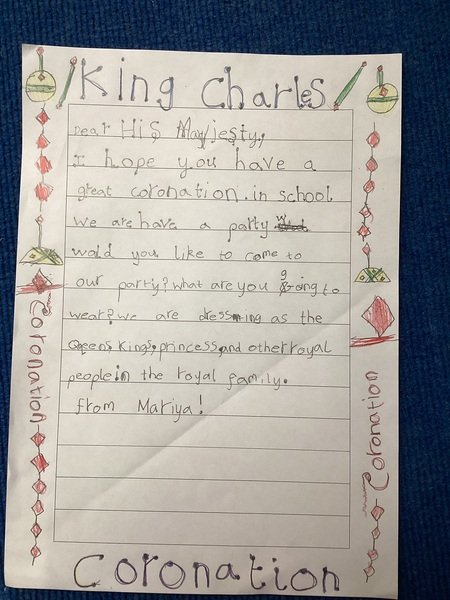 King Charles
Dear His Mayjesty,
I hope you have a
great coronation. in school
we are have a party w
wold you like to come to
our party? what are you going to
wear? we are dressing as the
Queens, Kings, princess, and other royal
people in the royal family.
from Mariya!
Coronation
Coronation
Coronation